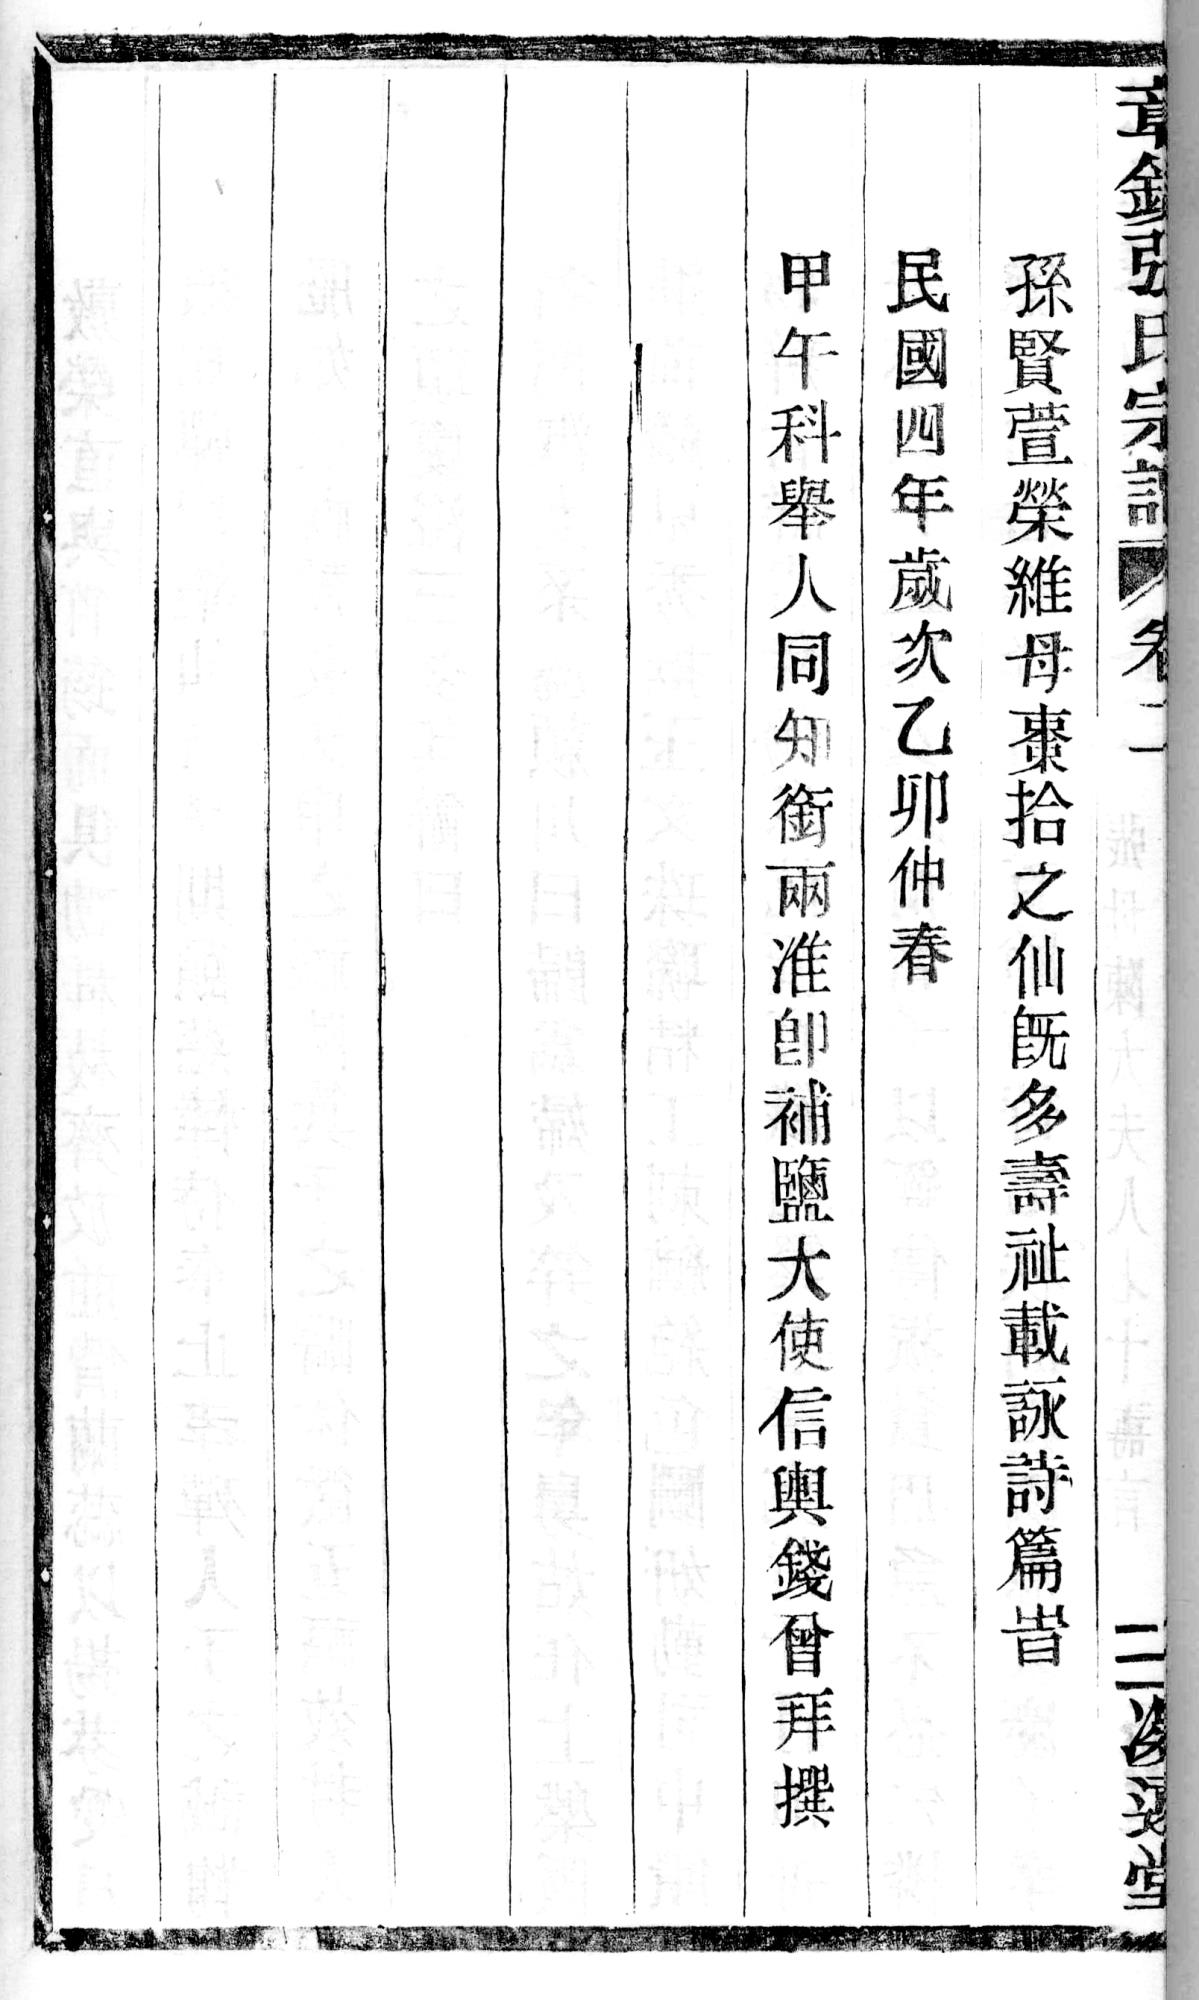 章鎮張氏宗譜 卷二 二 燕翼堂
孫賢萱榮維母棗拾之仙旣多壽祉載詠詩篇皆
民國四年歲次乙卯仲春
甲午科舉人同知銜兩淮卽補鹽大使信輿錢曾拜撰